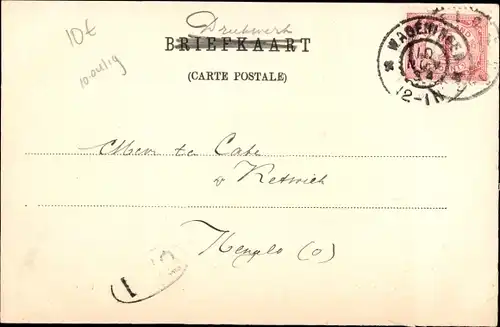 10t
Drukwerk
BRIEFKAART
(CARTE POSTALE)
WAGENINGEN
10
NOV
12-1N
Mevr ten Cate
v Ketwich
Hengelo (O)
1